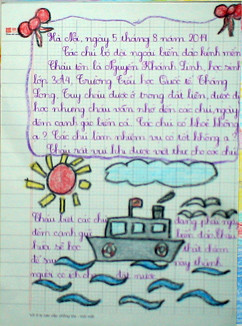 Hà Nội, ngày 5 tháng 8 năm 2014
Các chú bộ đội ngoài biển đảo kính mến
Cháu tên là Nguyễn Khánh Linh, học sinh
lớp 3A4, Trường Tiểu học Quốc tế Thăng
Long. Tuy cháu được ở trong đất liền, được đi
học nhưng cháu vẫn nhớ đến các chú, ngày
đêm canh gác biển cả. Các chú có khoẻ không
ạ? Các chú làm nhiệm vụ có tốt không ạ?
Cháu rất vui khi được viết thư cho các chú
Cháu biết các chú đang phải ngày
đêm canh giữ biển đảo. Cháu
hứa sẽ học thật chăm
để sau này thành
người có ích cho đất nước